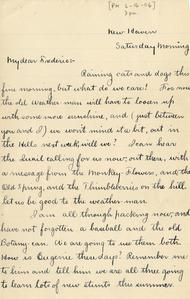 [PM 6-16-06]
3pm
New Haven
Saturday Morning
My dear Frederic:-
Raining cats and dogs this
fine morning, but what do we care! For now
the old weather man will have to loosen up
with some more sunshine, and (just between
you and I) we won't mind it a bit, out in
the Hills next week, will we? I can hear
the Quail calling for us now, out there, with
a message from the Monkey-Flowers, and the
Old Spring, and the Thimbleberries on the hill.
Let us be good to the weather-man.
I am all through packing now, and
have not forgotten a baseball and the old
Botany can. We are going to use them both.
How is Eugene these days? Remember me
to him and tell him we are all three going
to learn lots of new stunts this summer.